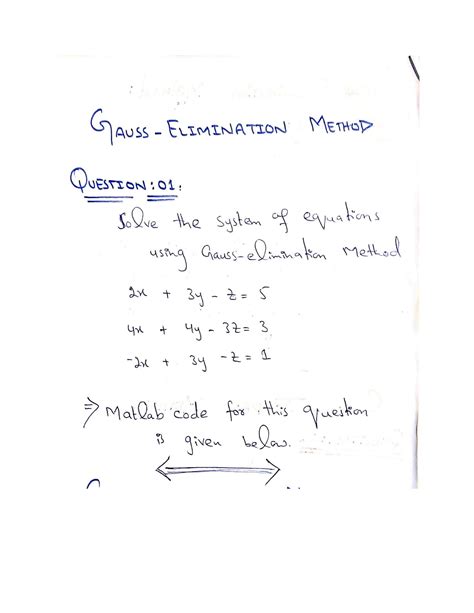 GAUSS-ELIMINATION METHOD
QUESTION:01:
Solve the system of equations
using Gauss-elimination Method
2x + 3y - z = 5
4x + 4y - 3z = 3
-2x + 3y - z = 1
⇒ Matlab code for this question
is given below.